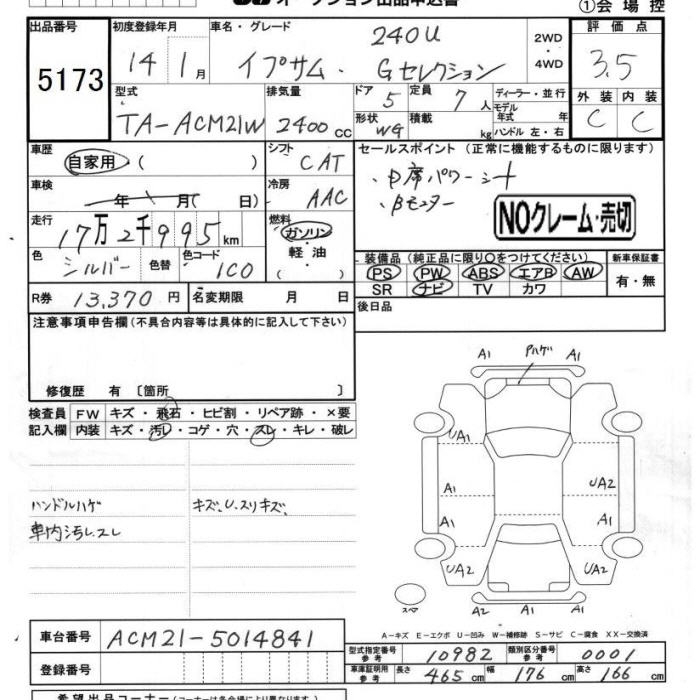 オークション出品申込書
①会場控
出品番号
5173
初度登録年月
14 1月
車名・グレード
240u
イプサム・Gセレクション
2WD
4WD
評価点
3.5
外装 内装
C C
型式
TA-ACM21W
排気量
2400cc
ドア 5
形状 WG
定員 7人
積載 kg
ディーラー・並行
モデル年式 年
ハンドル 左・右
車歴
自家用 ( )
シフト
CAT
セールスポイント (正常に機能するものに限ります)
車検
年 月( 日)
冷房
AAC
NOクレーム・売切
走行
17万2千995km
燃料
ガソリン
軽油
( )
色
シルバー
色替
色コード
1C0
装備品(純正品に限り○をつけてください)
新車保証書
PS PW ABS エアB AW
SR ナビ TV カワ
有・無
R券 13,370円
名変期限 月 日
後日品
注意事項申告欄(不具合内容等は具体的に記入して下さい)
修復歴 有 〔箇所 〕
検査員
記入欄
FW キズ・飛石・ヒビ割・リペア跡・×要
内装 キズ・汚レ・コゲ・穴・スレ・キレ・破レ
ハンドルハゲ
車内汚レ、スレ
キズ、U、スリキズ、
A1 Pハゲ A1
UA1
A1 UA2
A1 A1
UA2 UA2
A2 A1 A1
スペア
A-キズ E-エクボ U-凹み W-補修跡 S-サビ C-腐食 XX-交換済
車台番号
ACM21-5014841
登録番号
型式指定番号
参考
10982
類別区分番号
参考
0001
車庫証明用
参考
長さ 465cm 幅 176cm 高さ 166cm
希望出品コーナー(コーナーは各会場により異なります)